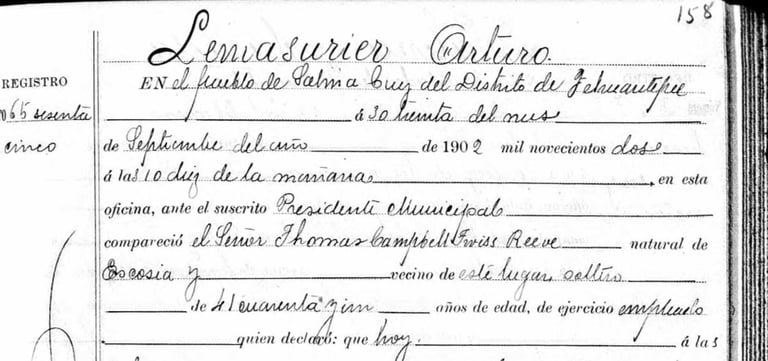 158
Lemasurier Arturo.
REGISTRO
65 sesenta
cinco
EN el pueblo de Salina Cruz del Distrito de Tehuantepec
á 30 treinta del mes
de Septiembre del año de 1902 mil novecientos dos
á las 10 diez de la mañana, en esta
oficina, ante el suscrito Presidente Municipal
compareció el Señor Thomas Campbell Twiss Reeve natural de
Escosia y vecino de este lugar soltero
de 41 cuarenta y un años de edad, de ejercicio empleado
quien declaró: que hoy. á las